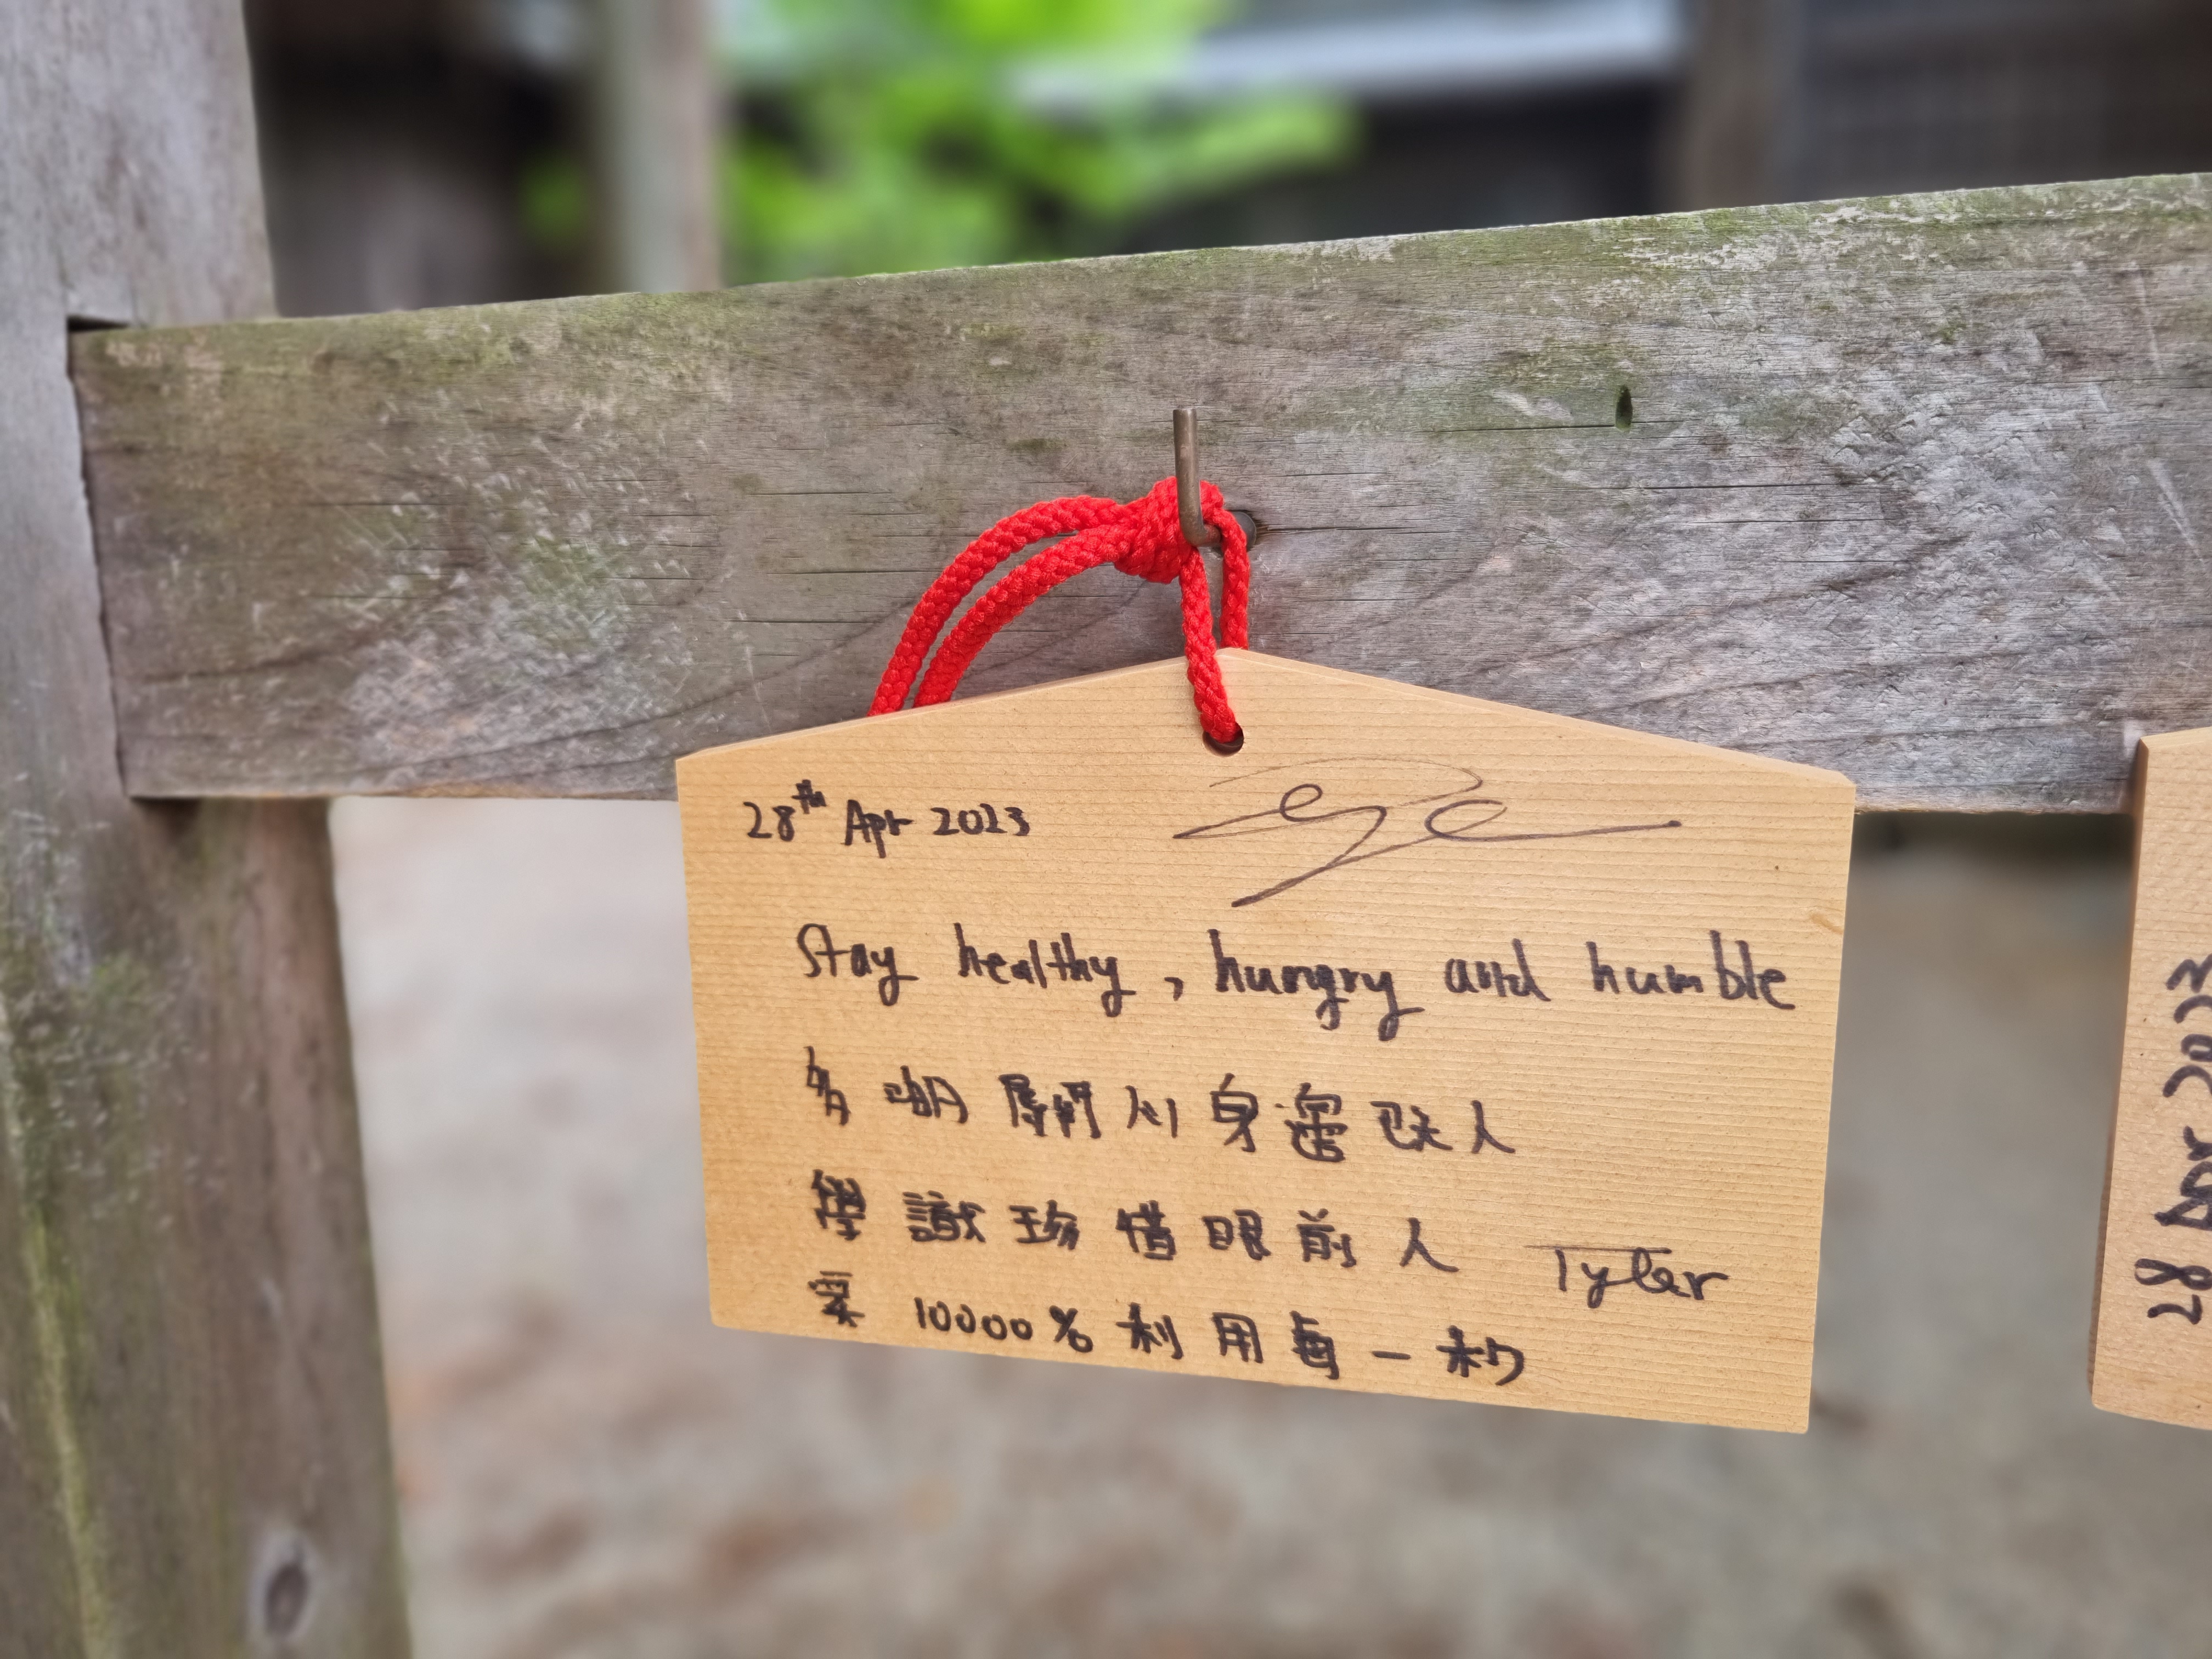 28th Apr 2023
Stay healthy, hungry and humble
多啲關心身邊既人
學識珍惜眼前人 Tyler
要 10000% 利用每一秒